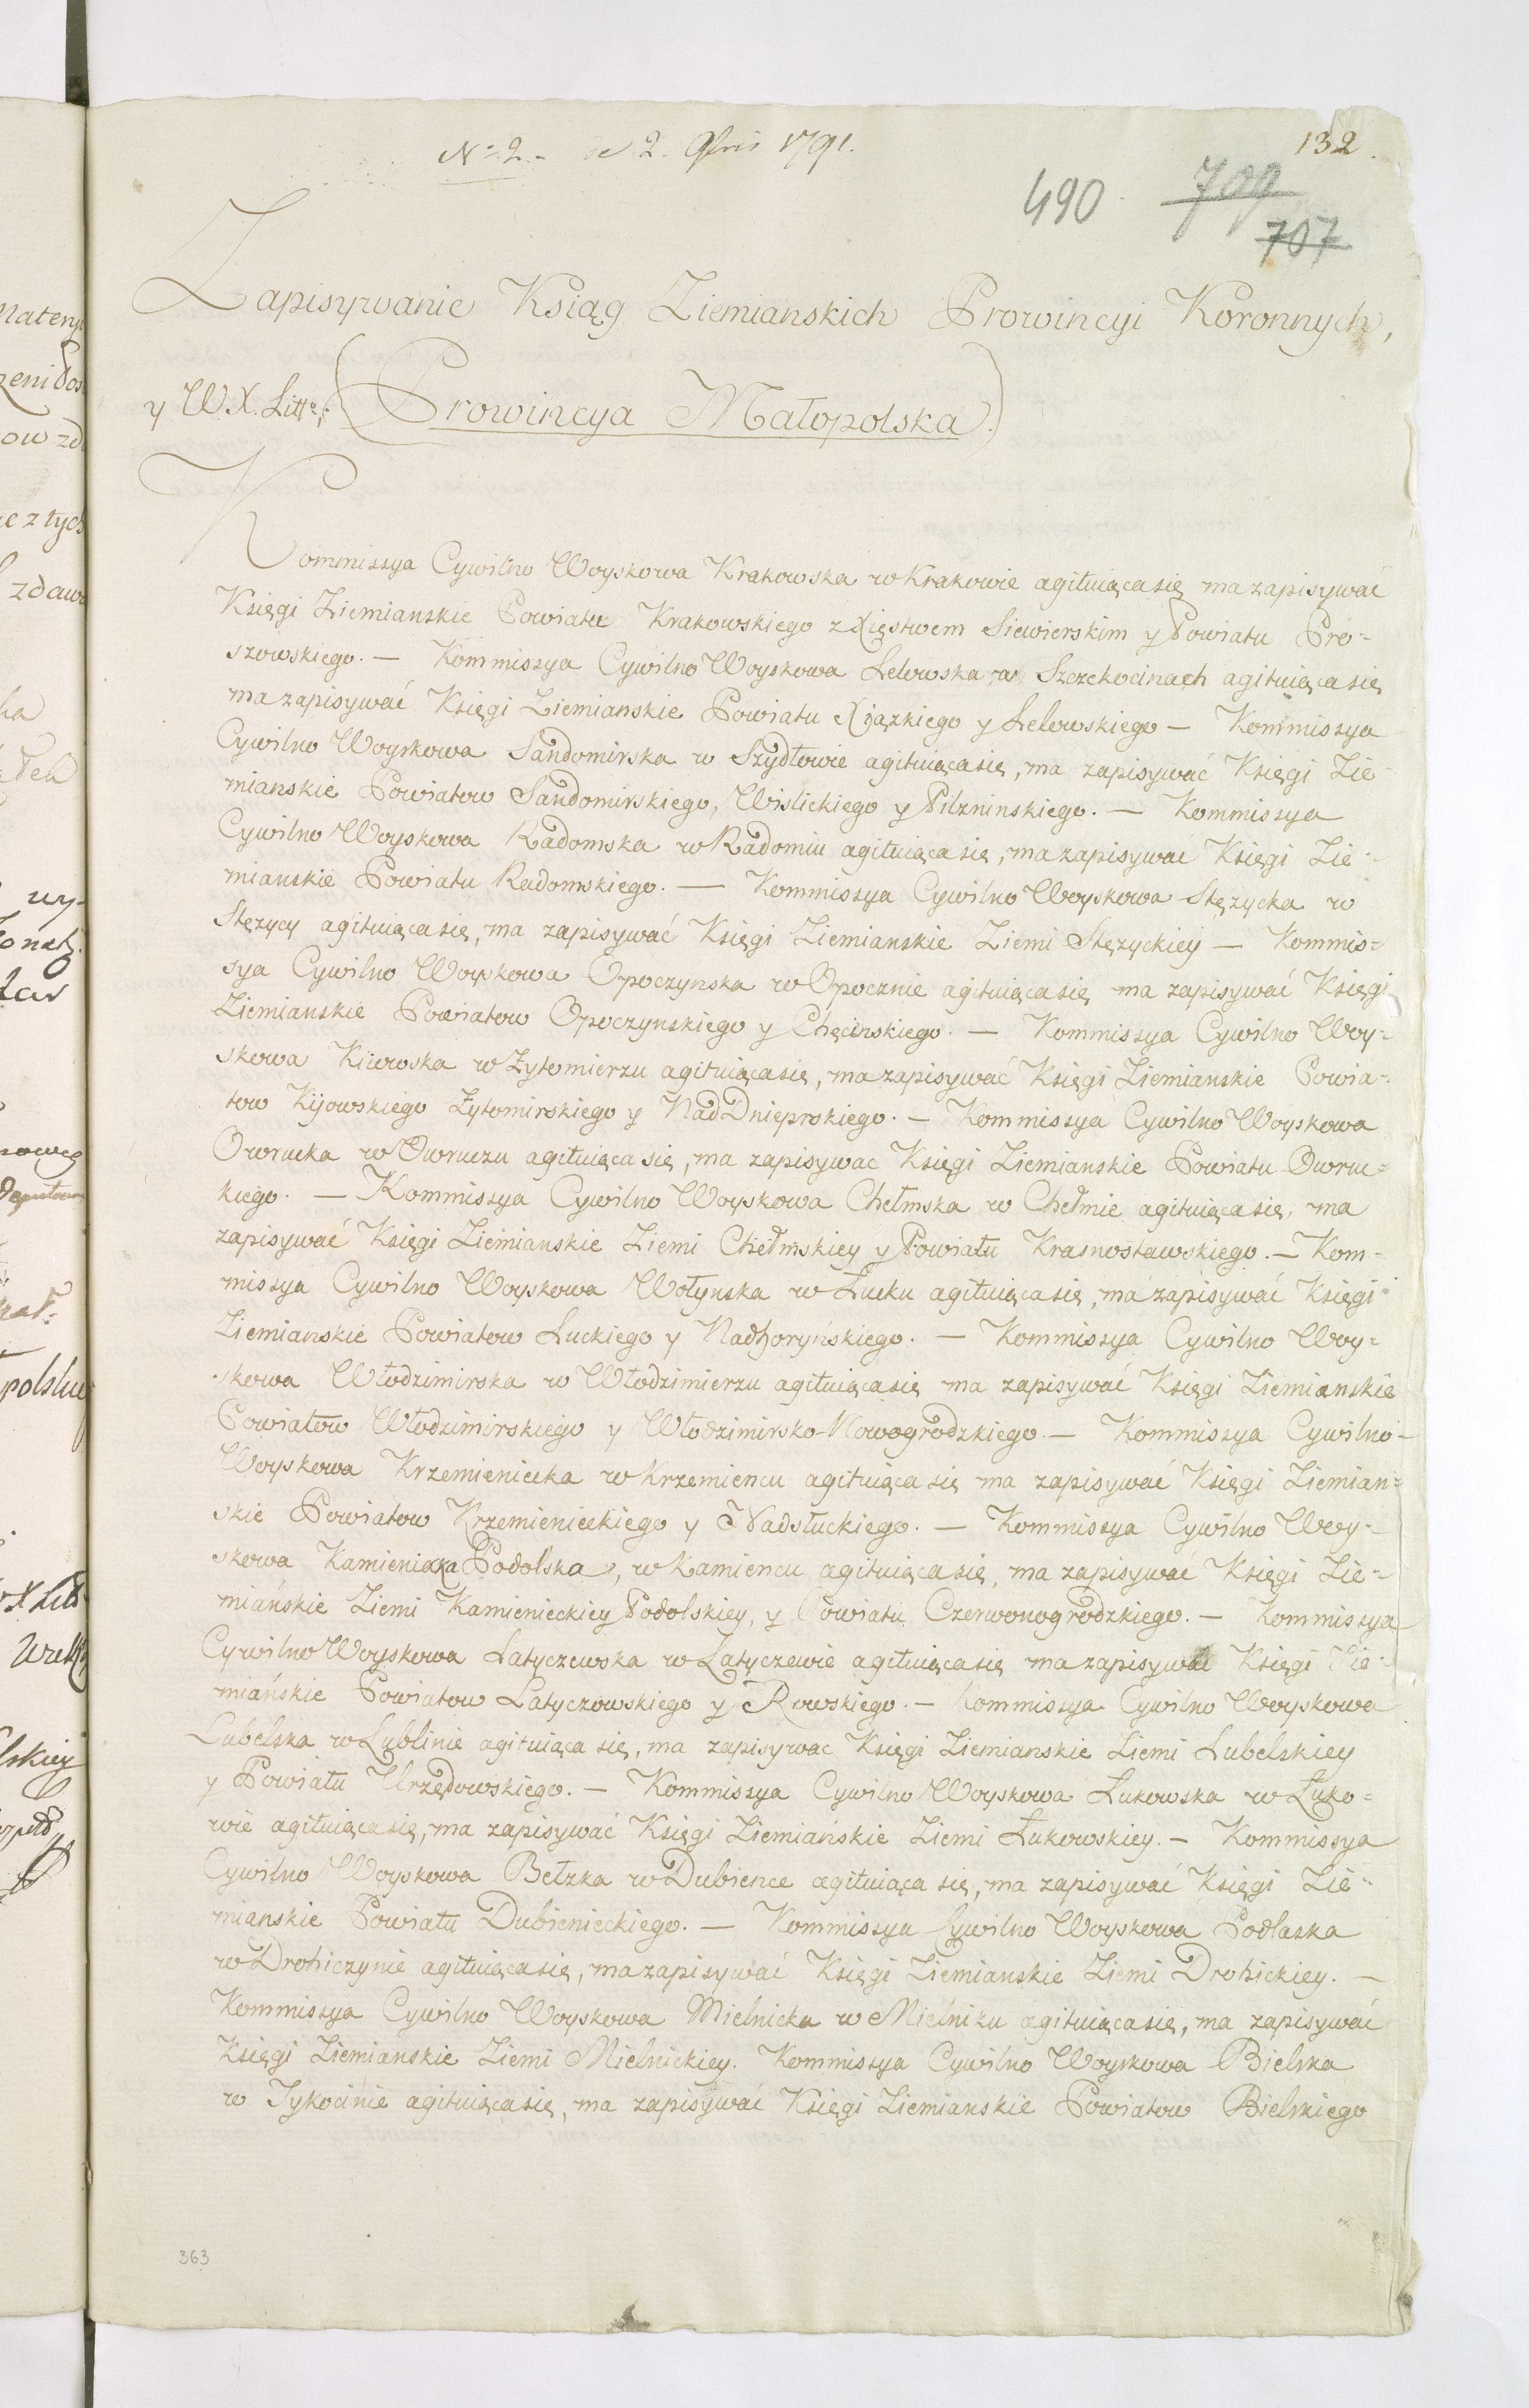 No 2. de 2. 9bris 1791.
132.
490. 709
707
Zapisywanie Ksiąg Ziemianskich Prowincyi Koronnych,
y W.X. Litto: (Prowincya Małopolska.)
Kommissya Cywilno Woyskowa Krakowska w Krakowie agituiąca się ma zapisywać
Księgi Ziemianskie Powiatu Krakowskiego z Xięstwem Siewierskim y Powiatu Pro-
szowskiego. — Kommissya Cywilno Woyskowa Lelowska w Szczekocinach agituiąca się
ma zapisywać Księgi Ziemianskie Powiatu Xiązkiego y Lelowskiego — Kommissya
Cywilno Woyskowa Sandomirska w Szydłowie agituiąca się, ma zapisywać Księgi Zie-
mianskie Powiatow Sandomirskiego, Wislickiego y Pilzninskiego. — Kommissya
Cywilno Woyskowa Radomska w Radomiu agituiąca się, ma zapisywać Księgi Zie-
mianskie Powiatu Radomskiego. — Kommissya Cywilno Woyskowa Stęzycka w
Stęzycy agituiąca się, ma zapisywać Księgi Ziemianskie Ziemi Stęzyckiey — Kommis=
sya Cywilno Woyskowa Opoczynska w Opocznie agituiąca się ma zapisywać Księgi
Ziemianskie Powiatow Opoczynskiego y Chęcinskiego. — Kommissya Cywilno Woy-
skowa Kiiowska w Żytomierzu agituiąca się, ma zapisywać Księgi Ziemianskie Powia-
tow Kijowskiego Żytomirskiego y NadDnieprskiego. — Kommissya Cywilno Woyskowa
Owrucka w Owruczu agituiąca się, ma zapisywac Księgi Ziemianskie Powiatu Owruc=
kiego. — Kommissya Cywilno Woyskowa Chełmska w Chełmie agituiąca się, ma
zapisywać Księgi Ziemianskie Ziemi Chełmskiey y Powiatu Krasnostawskiego. — Kom-
missya Cywilno Woyskowa Wołynska w Łucku agituiąca się, ma zapisywać Księgi
Ziemianskie Powiatow Łuckiego y Nadhoryńskiego. — Kommissya Cywilno Woy-
skowa Włodzimirska w Włodzimierzu agituiąca się ma zapisywać Księgi Ziemianskie
Powiatow Włodzimirskiego y Włodzimirsko-Nowogrodzkiego. — Kommissya Cywilno-
Woyskowa Krzemieniecka w Krzemiencu agituiąca się ma zapisywać Księgi Ziemian-
skie Powiatow Krzemienieckiego y Nadsłuckiego. — Kommissya Cywilno Woy-
skowa Kamieniecka Podolska, w Kamiencu agituiąca się, ma zapisywać Księgi Zie-
miańskie Ziemi Kamienieckiey Podolskiey, y Powiatu Czerwonogrodzkiego. — Kommissya
Cywilno Woyskowa Latyczewska w Latyczewie agituiąca się ma zapisywać Księgi Zie-
miańskie Powiatow Latyczowskiego y Rowskiego. — Kommissya Cywilno Woyskowa
Lubelska w Lublinie agituiąca się, ma zapisywac Księgi Ziemianskie Ziemi Lubelskiey
y Powiatu Urzędowskiego. — Kommissya Cywilno Woyskowa Łukowska w Łuko-
wie agituiąca się, ma zapisywać Księgi Ziemiańskie Ziemi Łukowskiey. — Kommissya
Cywilno Woyskowa Bełzka w Dubience agituiąca się, ma zapisywać Księgi Zie-
mianskie Powiatu Dubienieckiego. — Kommissya Cywilno Woyskowa Podlaska
w Drohiczynie agituiąca się, ma zapisywać Księgi Ziemianskie Ziemi Drohickiey. —
Kommissya Cywilno Woyskowa Mielnicka w Mielniku agituiąca się, ma zapisywać
Księgi Ziemianskie Ziemi Mielnickiey. Kommissya Cywilno Woyskowa Bielska
w Tykocinie agituiąca się, ma zapisywać Księgi Ziemianskie Powiatow Bielskiego
363